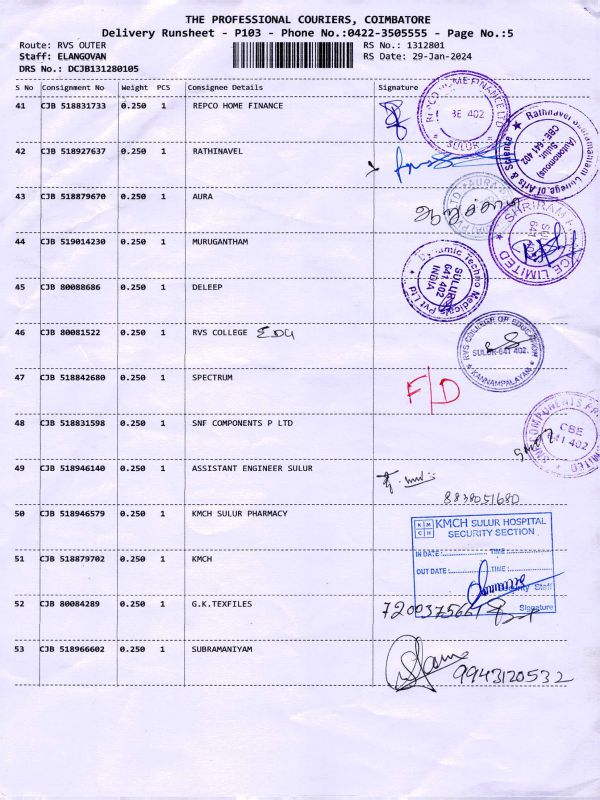 THE PROFESSIONAL COURIERS, COIMBATORE
Delivery Runsheet - P103 - Phone No.:0422-3505555 - Page No.:5
Route: RVS OUTER RS No.: 1312801
Staff: ELANGOVAN RS Date: 29-Jan-2024
DRS No.: DCJB131280105
S No Consignment No Weight PCS Consignee Details Signature
41 CJB 518831733 0.250 1 REPCO HOME FINANCE
REPCO HOME FINANCE LTD
CBE 402
SULUR
42 CJB 518927637 0.250 1 RATHINAVEL
Rathnavel Subramaniam College of Arts &
(Autonomous)
Sulur,
CBE - 641 402
43 CJB 518879670 0.250 1 AURA
AURA
44 CJB 519014230 0.250 1 MURUGANTHAM
SHRIRAM FINANCE LIMITED
45 CJB 80088686 0.250 1 DELEEP
Techno Medicals Pvt Ltd
SULUR
641 402
INDIA
46 CJB 80081522 0.250 1 RVS COLLEGE EDU
RVS COLLEGE OF EDUCATION
SULUR-641 402.
KANNAMPALAYAM
47 CJB 518842680 0.250 1 SPECTRUM
F/D
48 CJB 518831598 0.250 1 SNF COMPONENTS P LTD
COMPONENTS
CBE
641 402
49 CJB 518946140 0.250 1 ASSISTANT ENGINEER SULUR
8838051680
50 CJB 518946579 0.250 1 KMCH SULUR PHARMACY
KM
CH
KMCH SULUR HOSPITAL
SECURITY SECTION
IN DATE: TIME:
51 CJB 518879702 0.250 1 KMCH
OUT DATE: TIME:
Security Staff
Signature
52 CJB 80084289 0.250 1 G.K.TEXFILES
53 CJB 518966602 0.250 1 SUBRAMANIYAM
9943120532